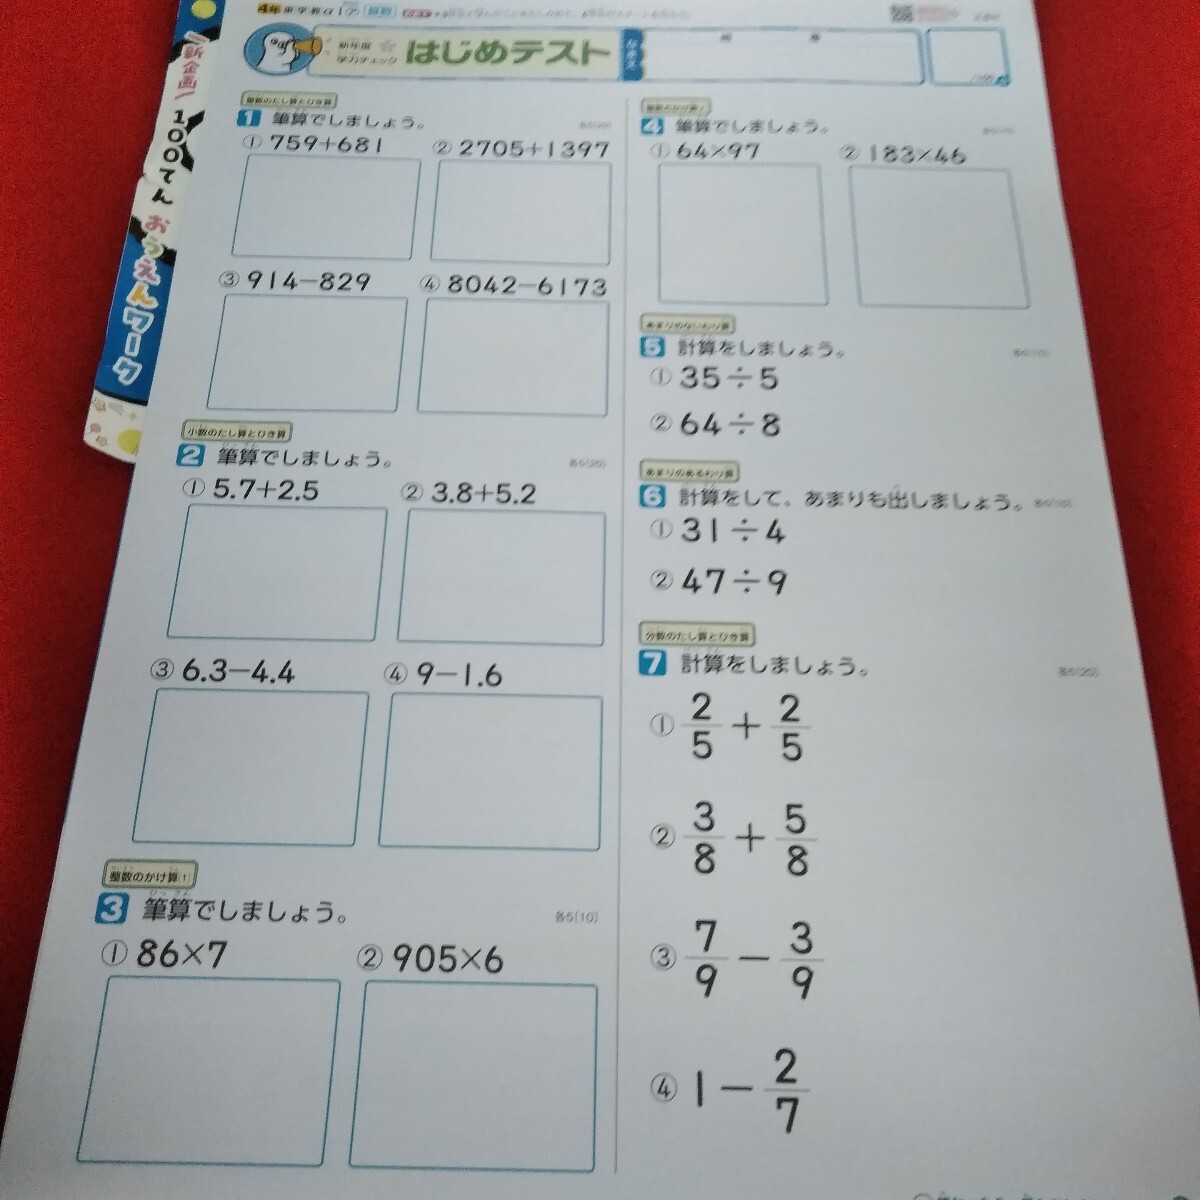 4年 東学数α1ア 算数
新年度
学力チェック
はじめテスト
なまえ
組
番
/100
\新企画/
100てん
おうえんワーク
整数のたし算とひき算
1 筆算でしましょう。
各5(20)
① 759+681
② 2705+1397
③ 914−829
④ 8042−6173
小数のたし算とひき算
2 筆算でしましょう。
各5(20)
① 5.7+2.5
② 3.8+5.2
③ 6.3−4.4
④ 9−1.6
整数のかけ算①
3 筆算でしましょう。
各5(10)
① 86×7
② 905×6
4 筆算でしましょう。
① 64×97
② 183×46
あまりのないわり算
5 計算をしましょう。
① 35÷5
② 64÷8
あまりのあるわり算
6 計算をして、あまりも出しましょう。
① 31÷4
② 47÷9
分数のたし算とひき算
7 計算をしましょう。
各5(20)
① 2/5 + 2/5
② 3/8 + 5/8
③ 7/9 − 3/9
④ 1 − 2/7